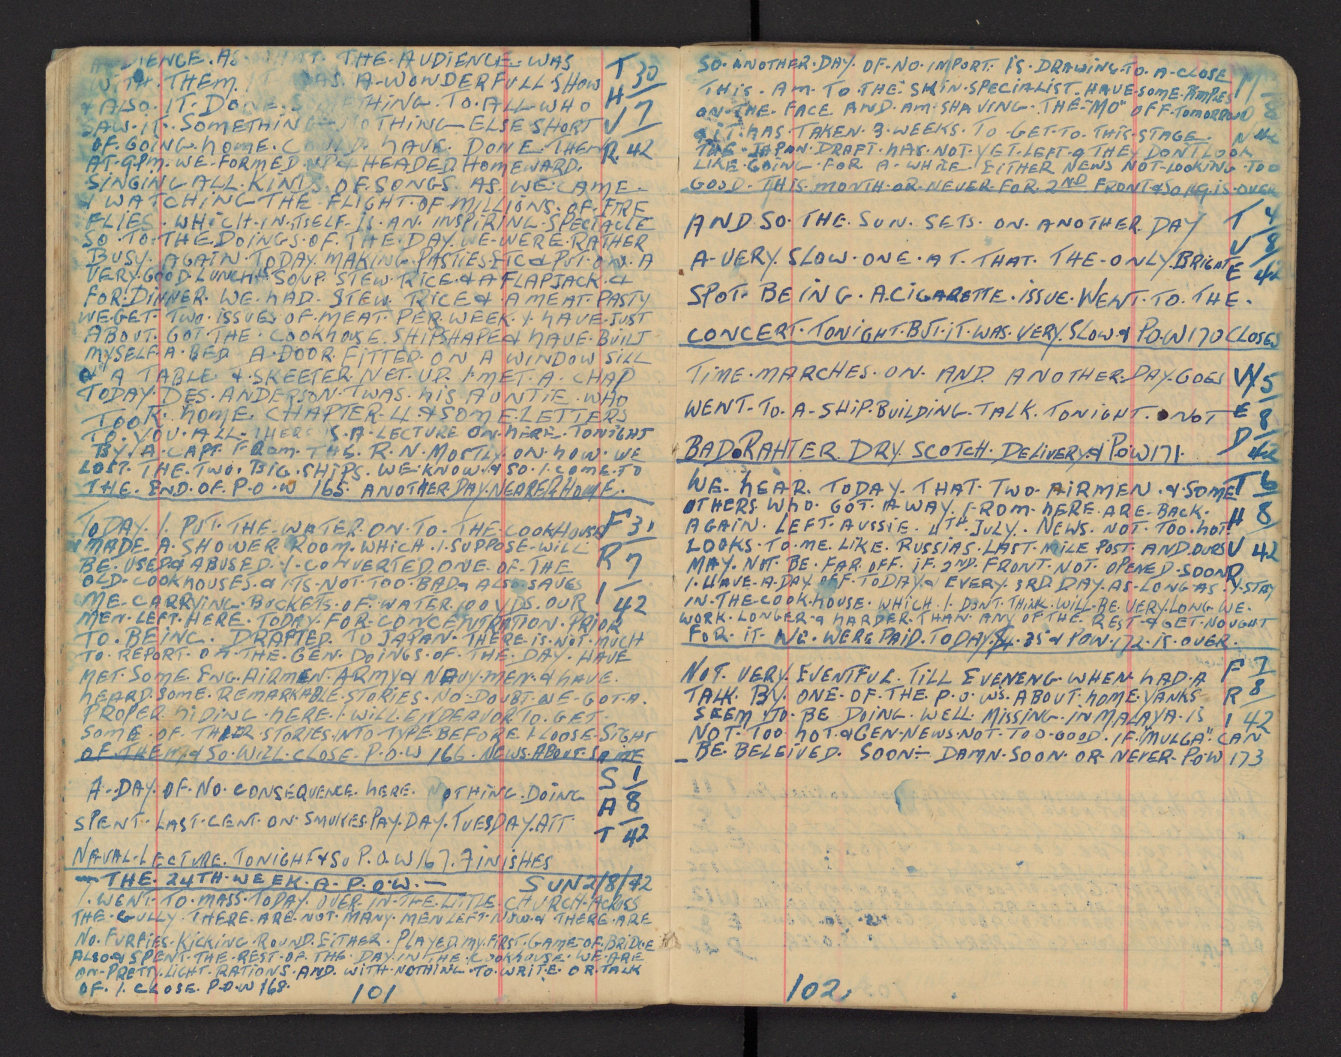 DIENCE. AS THE. AUDIENCE. WAS
WITH. THEM. IT WAS. A. WONDERFULL SHOW
& ALSO. IT. DONE. SOMETHING. TO. ALL. WHO
SAW. IT. SOMETHING NOTHING ELSE SHORT
OF. GOING. HOME. COULD HAVE. DONE. THEM
AT. 9 P.M. WE. FORMED UP & HEADED. HOMEWARD.
SINGING ALL. KINDS. OF. SONGS. AS. WE. CAME.
& WATCHING. THE. FLIGHT. OF. MILLIONS. OF. FIRE
FLIES. WHICH. IN. ITSELF. IS. AN. INSPIRING. SPECTACLE
SO. TO. THE. DOINGS. OF. THE. DAY. WE. WERE. RATHER
BUSY. AGAIN. TODAY. MAKING. PASTIES. ETC & PUT. ON. A
VERY. GOOD. LUNCH. SOUP. STEW. RICE. & A FLAPJACK. &
FOR. DINNER. WE. HAD. STEW. RICE &. A MEAT. PASTY
WE. GET. TWO. ISSUES OF. MEAT. PER. WEEK. & HAVE. JUST
ABOUT. GOT. THE. COOKHOUSE. SHIPSHAPE & HAVE. BUILT
MYSELF. A. BED. A. DOOR. FITTED. ON A WINDOW SILL
& A TABLE. & SKEETER NET. UP. I. MET. A. CHAP
TODAY. DES. ANDERSON. TWAS. HIS. AUNTIE. WHO
TOOK. HOME. CHAPTER. 4 & SOME. LETTERS
TO. YOU. ALL. THERE IS. A. LECTURE. ON. HERE. TONIGHT
BY. A. CAPT. FROM. THE. R.N. MOSTLY. ON. HOW. WE
LOST. THE. TWO. BIG. SHIPS. WE. KNOW. & SO. I. COME. TO
THE. END. OF. P.O.W 165 ANOTHER DAY. NEARER HOME.
T 30
H
U 7
R 42
TODAY. I. PUT. THE. WATER. ON. TO. THE. COOKHOUSE
& MADE. A. SHOWER. ROOM. WHICH. I. SUPPOSE. WILL
BE. USED & ABUSED. I. CONVERTED. ONE. OF. THE
OLD. COOKHOUSES. & ITS. NOT. TOO. BAD & ALSO SAVES
ME. CARRYING. BUCKETS. OF. WATER. 100 YDS. OUR
MEN. LEFT. HERE. TODAY. FOR. CONCENTRATION. PRIOR
TO. BEING. DRAFTED. TO. JAPAN. THERE. IS. NOT. MUCH
TO. REPORT. ON. THE. GEN. DOINGS. OF. THE. DAY. HAVE
MET. SOME. ENG. AIRMEN. ARMY & NAVY. MEN. & HAVE.
HEARD. SOME. REMARKABLE. STORIES. NO. DOUBT. WE. GOT. A.
PROPER. HIDING. HERE. I. WILL. ENDERVOR. TO. GET.
SOME. OF. THEIR. STORIES. INTO. TYPE. BEFORE. I. LOOSE. SIGHT
OF. THEM. & SO. WILL. CLOSE. P.O.W 166. NEWS. ABOUT SAME
F 31
R 7
I 42
A. DAY. OF. NO. CONSEQUENCE. HERE. NOTHING. DOING
SPENT. LAST. CENT. ON. SMOKES. PAY. DAY. TUESDAY. ATT
NAVAL. LECTURE. TONIGHT & SO P.O.W 167. FINISHES
S 1
A 8
T 42
— THE. 24TH. WEEK. A. P.O.W. — SUN 2/8/42
I. WENT. TO. MASS. TODAY. OVER. IN. THE. LITTLE. CHURCH. ACROSS
THE. GULLY. THERE. ARE. NOT. MANY. MEN LEFT. NOW. & THERE. ARE
NO. FURFIES. KICKING. ROUND. EITHER. PLAYED. MY. FIRST. GAME. OF. BRIDGE
ALSO & SPENT. THE. REST. OF. THE. DAY. IN. THE. COOKHOUSE. WE. ARE
ON. PRETTY. LIGHT. RATIONS. AND. WITH. NOTHING. TO. WRITE. OR. TALK
OF. I. CLOSE. P.O.W 168.
101
SO. ANOTHER. DAY. OF. NO. IMPORT. IS. DRAWING. TO. A. CLOSE
THIS. A.M. TO. THE. SKIN. SPECIALIST. HAVE. SOME. PIMPLES
ON. THE. FACE AND. AM. SHAVING. THE. "MO" OFF. TOMORROW
& IT. HAS TAKEN. 3. WEEKS. TO GET. TO. THIS. STAGE.
THE. JAPAN. DRAFT. HAS. NOT. YET. LEFT. & THEY. DONT. LOOK
LIKE. GOING. FOR. A. WHILE. EITHER NEWS. NOT. LOOKING. TOO
GOOD. THIS. MONTH. OR. NEVER. FOR. 2ND FRONT & SO 169. IS. OVER
M 3
8
N 42
AND. SO. THE. SUN. SETS. ON. ANOTHER. DAY
A. VERY. SLOW. ONE. AT. THAT. THE. ONLY. BRIGHT
SPOT. BEING. A CIGARETTE. ISSUE. WENT. TO. THE.
CONCERT. TONIGHT. BUT. IT. WAS. VERY. SLOW. & P.O.W 170 CLOSES
T 4
U 8
E 42
TIME. MARCHES. ON. AND. ANOTHER. DAY. GOES
WENT. TO. A. SHIP. BUILDING. TALK. TONIGHT. NOT
BAD. RAHTER DRY. SCOTCH. DELIVERY. & P.O.W 171.
W 5
E 8
D 42
WE. HEAR. TODAY. THAT. TWO. AIRMEN. & SOME
OTHERS WHO. GOT. AWAY. FROM. HERE. ARE. BACK.
AGAIN. LEFT. AUSSIE. 4TH. JULY. NEWS. NOT. TOO. HOT.
LOOKS. TO. ME. LIKE. RUSSIAS. LAST. MILE POST. AND. OURS
MAY. NOT. BE. FAR. OFF. IF. 2ND. FRONT. NOT. OPENED. SOON
I. HAVE. A. DAY. OFF. TODAY & EVERY. 3RD. DAY. AS. LONG. AS. I. STAY
IN. THE. COOKHOUSE. WHICH. I. DONT. THINK. WILL. BE. VERY. LONG. WE.
WORK. LONGER & HARDER. THAN. ANY. OF. THE. REST. & GET. NOUGHT
FOR. IT. WE. WERE. PAID. TODAY. $4.35 & POW. 172. IS. OVER.
T 6
H 8
U 42
R
NOT. VERY. EVENTFUL. TILL. EVENENG. WHEN. HAD. A
TALK. BY. ONE. OF. THE. P.O.WS. ABOUT. HOME. YANKS
SEEM. TO. BE DOING. WELL. MISSING. IN. MALAYA. IS
NOT. TOO. HOT. & GEN. NEWS. NOT. TOO. GOOD. IF. "MULGA" CAN
BE. BELEIVED. SOON. DAMN. SOON. OR. NEVER. POW 173
F 7
R 8
I 42
102.